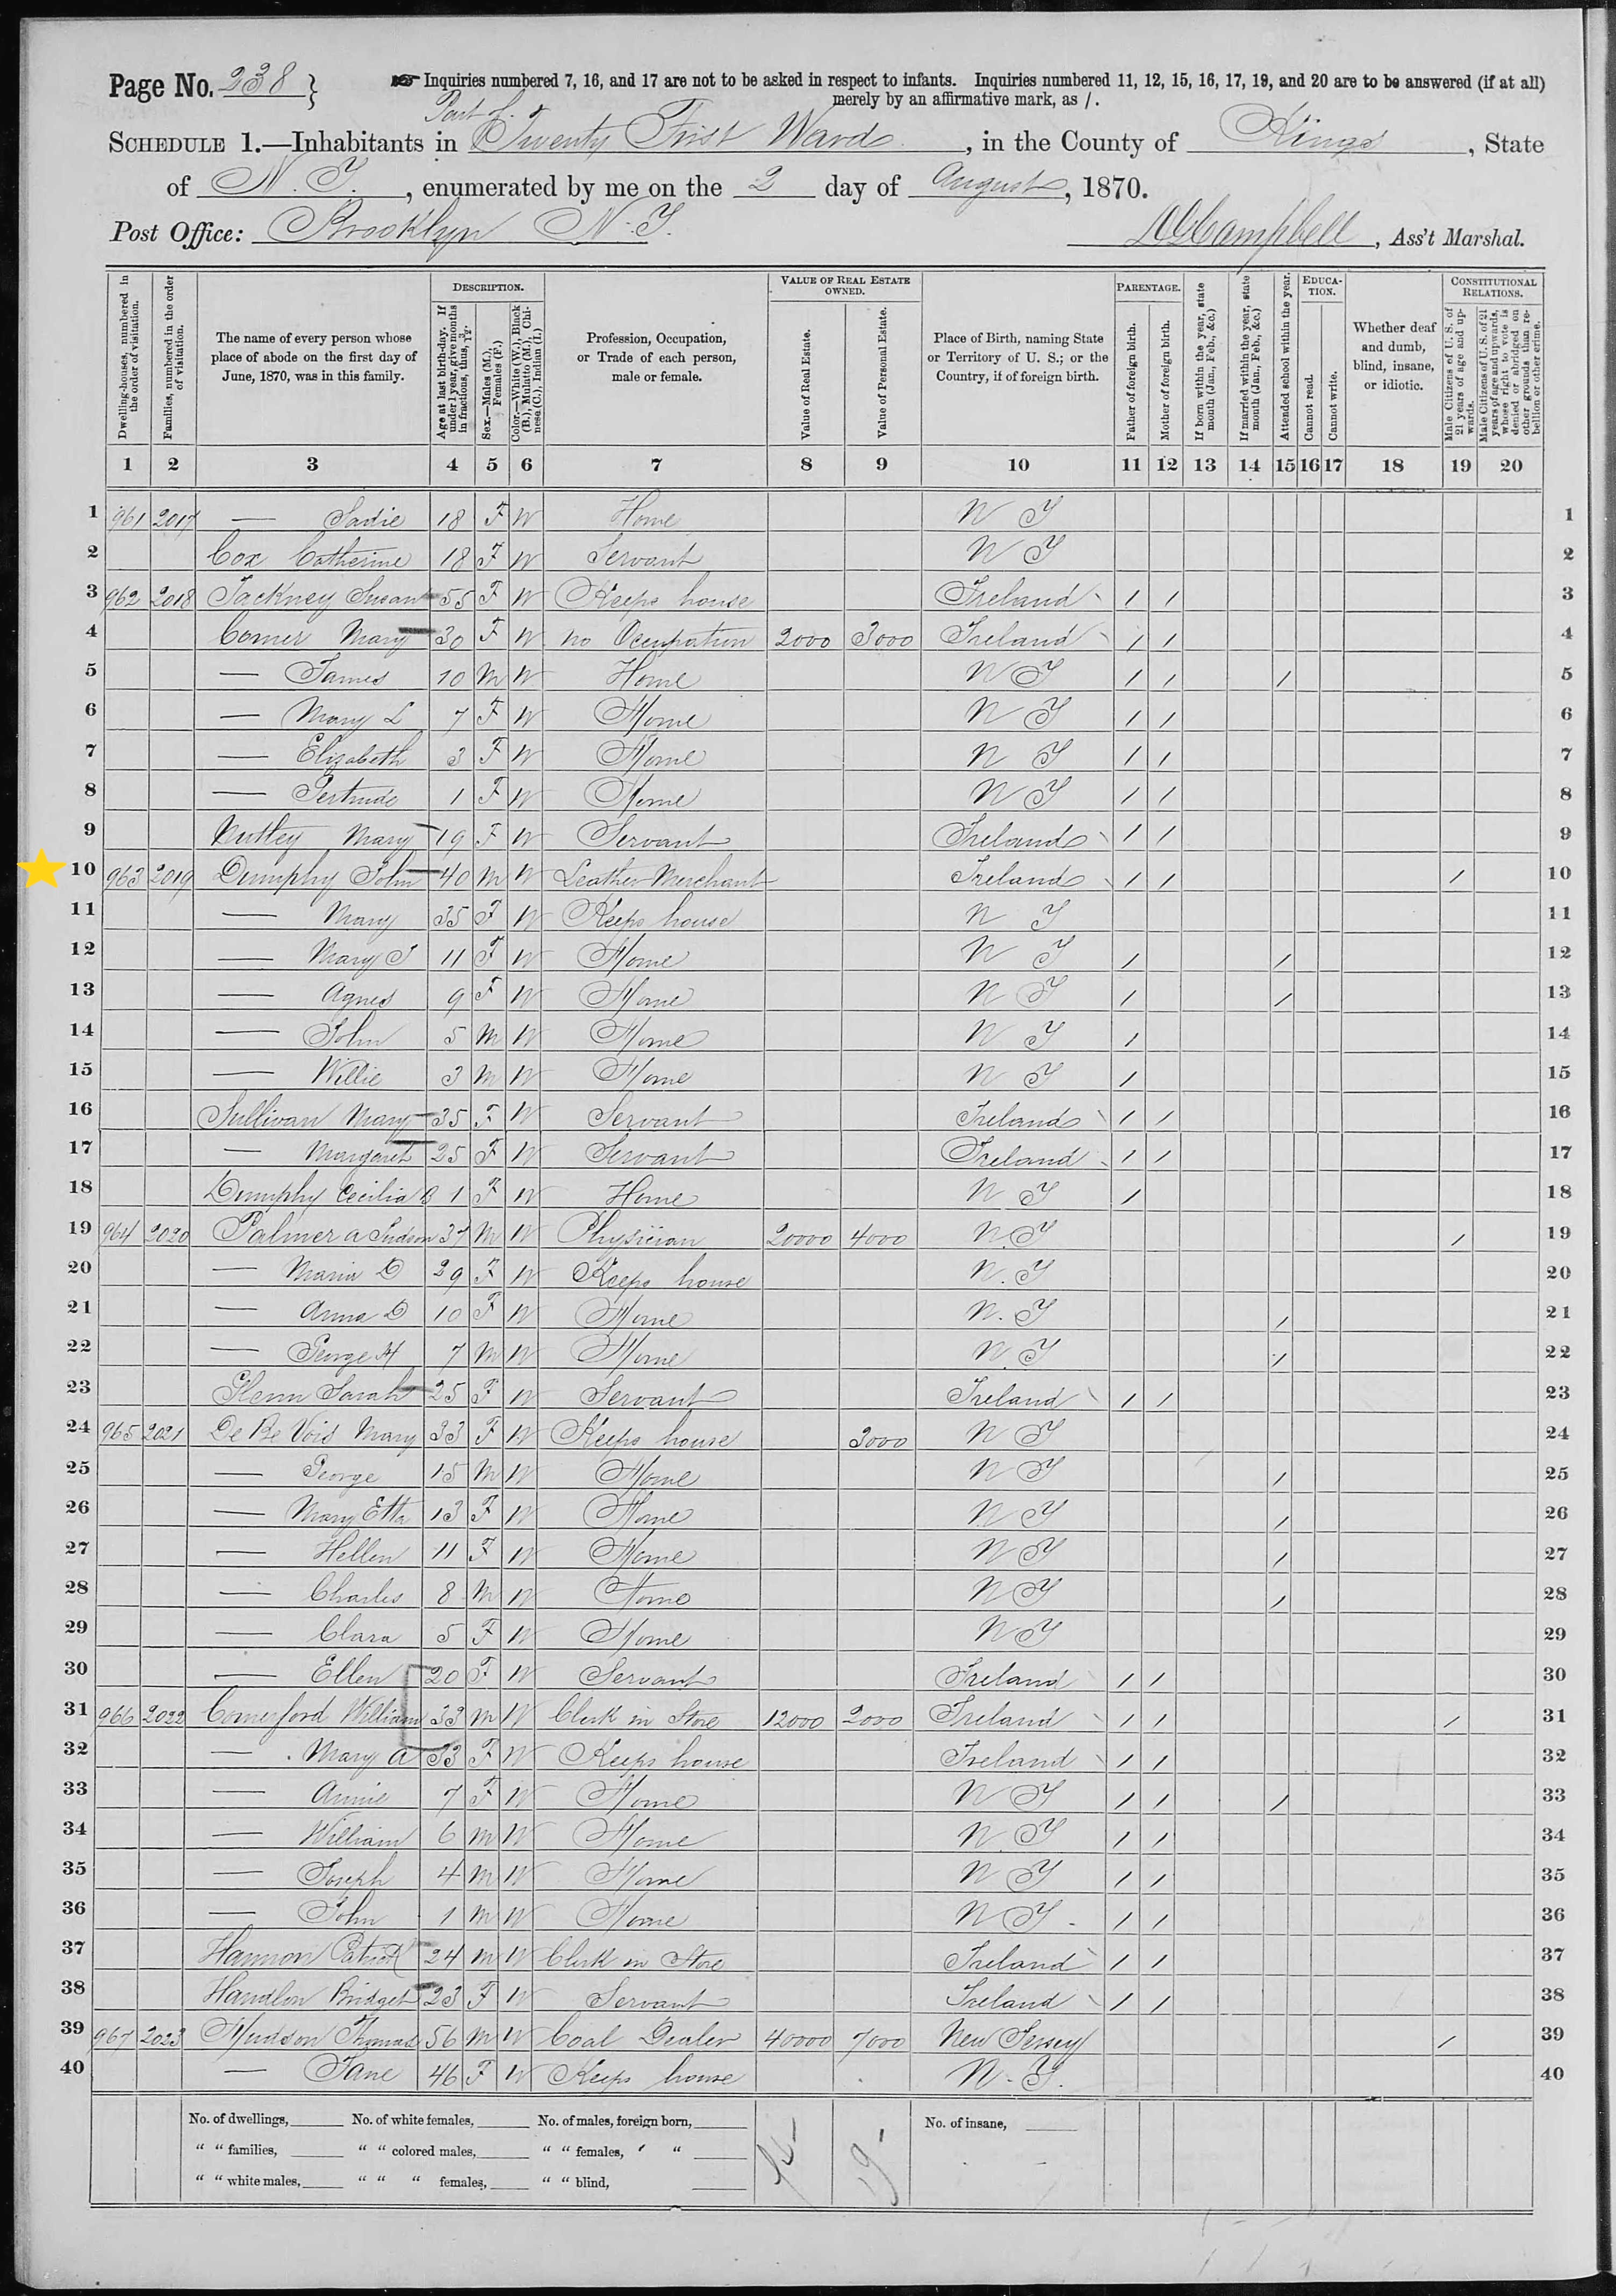 Page No. 238 }
☞ Inquiries numbered 7, 16, and 17 are not to be asked in respect to infants. Inquiries numbered 11, 12, 15, 16, 17, 19, and 20 are to be answered (if at all)
merely by an affirmative mark, as /.
Part of
SCHEDULE 1.—Inhabitants in Twenty First Ward, in the County of Kings, State
of N.Y., enumerated by me on the 2 day of August, 1870.
Post Office: Brooklyn N.Y. Campbell, Ass't Marshal.
Dwelling-houses, numbered in the order of visitation.
Families, numbered in the order of visitation.
The name of every person whose place of abode on the first day of June, 1870, was in this family.
DESCRIPTION.
Age at last birth-day. If under 1 year, give months in fractions, thus, 3/12.
Sex.—Males (M.), Females (F.)
Color.—White (W.), Black (B.), Mulatto (M.), Chinese (C.), Indian (I.)
Profession, Occupation, or Trade of each person, male or female.
VALUE OF REAL ESTATE OWNED.
Value of Real Estate.
Value of Personal Estate.
Place of Birth, naming State or Territory of U. S.; or the Country, if of foreign birth.
PARENTAGE.
Father of foreign birth.
Mother of foreign birth.
If born within the year, state month (Jan., Feb., &c.)
If married within the year, state month (Jan., Feb., &c.)
Attended school within the year.
EDUCATION.
Cannot read.
Cannot write.
Whether deaf and dumb, blind, insane, or idiotic.
CONSTITUTIONAL RELATIONS.
Male Citizens of U. S. of 21 years of age and upwards.
Male Citizens of U. S. of 21 years of age and upwards, whose right to vote is denied or abridged on other grounds than rebellion or other crime.
1 2 3 4 5 6 7 8 9 10 11 12 13 14 15 16 17 18 19 20
1 961 2017 — Sadie 18 F W Home N Y 1
2 Cox Catherine 18 F W Servant N Y 2
3 962 2018 Tackney Susan 55 F W Keeps house Ireland / / 3
4 Comer Mary 30 F W no Occupation 2000 3000 Ireland / / 4
5 — James 10 M W Home N Y / / / 5
6 — Mary L 7 F W Home N Y / / 6
7 — Elizabeth 3 F W Home N Y / / 7
8 — Gertrude 1 F W Home N Y / / 8
9 Nutley Mary 19 F W Servant Ireland / / 9
10 963 2019 Dumphy John 40 M W Leather Merchant Ireland / / / 10
11 — Mary 35 F W Keeps house N Y 11
12 — Mary J 11 F W Home N Y / / 12
13 — Agnes 9 F W Home N Y / / 13
14 — John 5 M W Home N Y / 14
15 — Willie 3 M W Home N Y / 15
16 Sullivan Mary 35 F W Servant Ireland / / 16
17 — Margaret 25 F W Servant Ireland / / 17
18 Dumphy Cecilia B 1 F W Home N Y / 18
19 964 2020 Palmer A Judson 37 M W Physician 20000 4000 N.Y / 19
20 — Maria D 29 F W Keeps house N.Y 20
21 — Anna D 10 F W Home N.Y / 21
22 — George H 7 M W Home N.Y / 22
23 Glenn Sarah 25 F W Servant Ireland / / 23
24 965 2021 De Be Vois Mary 33 F W Keeps house 3000 N Y 24
25 — George 15 M W Home N Y / 25
26 — Mary Etta 13 F W Home N Y / 26
27 — Hellen 11 F W Home N Y / 27
28 — Charles 8 M W Home N Y / 28
29 — Clara 5 F W Home N Y 29
30 — Ellen 20 F W Servant Ireland / / 30
31 966 2022 Comerford William 33 M W Clerk in Store 12000 2000 Ireland / / / 31
32 — Mary A 33 F W Keeps house Ireland / / 32
33 — Annie 7 F W Home N Y / / / 33
34 — William 6 M W Home N Y / / 34
35 — Joseph 4 M W Home N Y / / 35
36 — John 1 M W Home N Y / / 36
37 Hannon Patrick 24 M W Clerk in Store Ireland / / 37
38 Handlon Bridget 23 F W Servant Ireland / / 38
39 967 2023 Hudson Thomas 56 M W Coal Dealer 40000 7000 New Jersey / 39
40 — Jane 46 F W Keeps house N.Y. 40
No. of dwellings, No. of white females, No. of males, foreign born, No. of insane,
" " families, " " colored males, " " females, " "
" " white males, " " " females, " " blind,